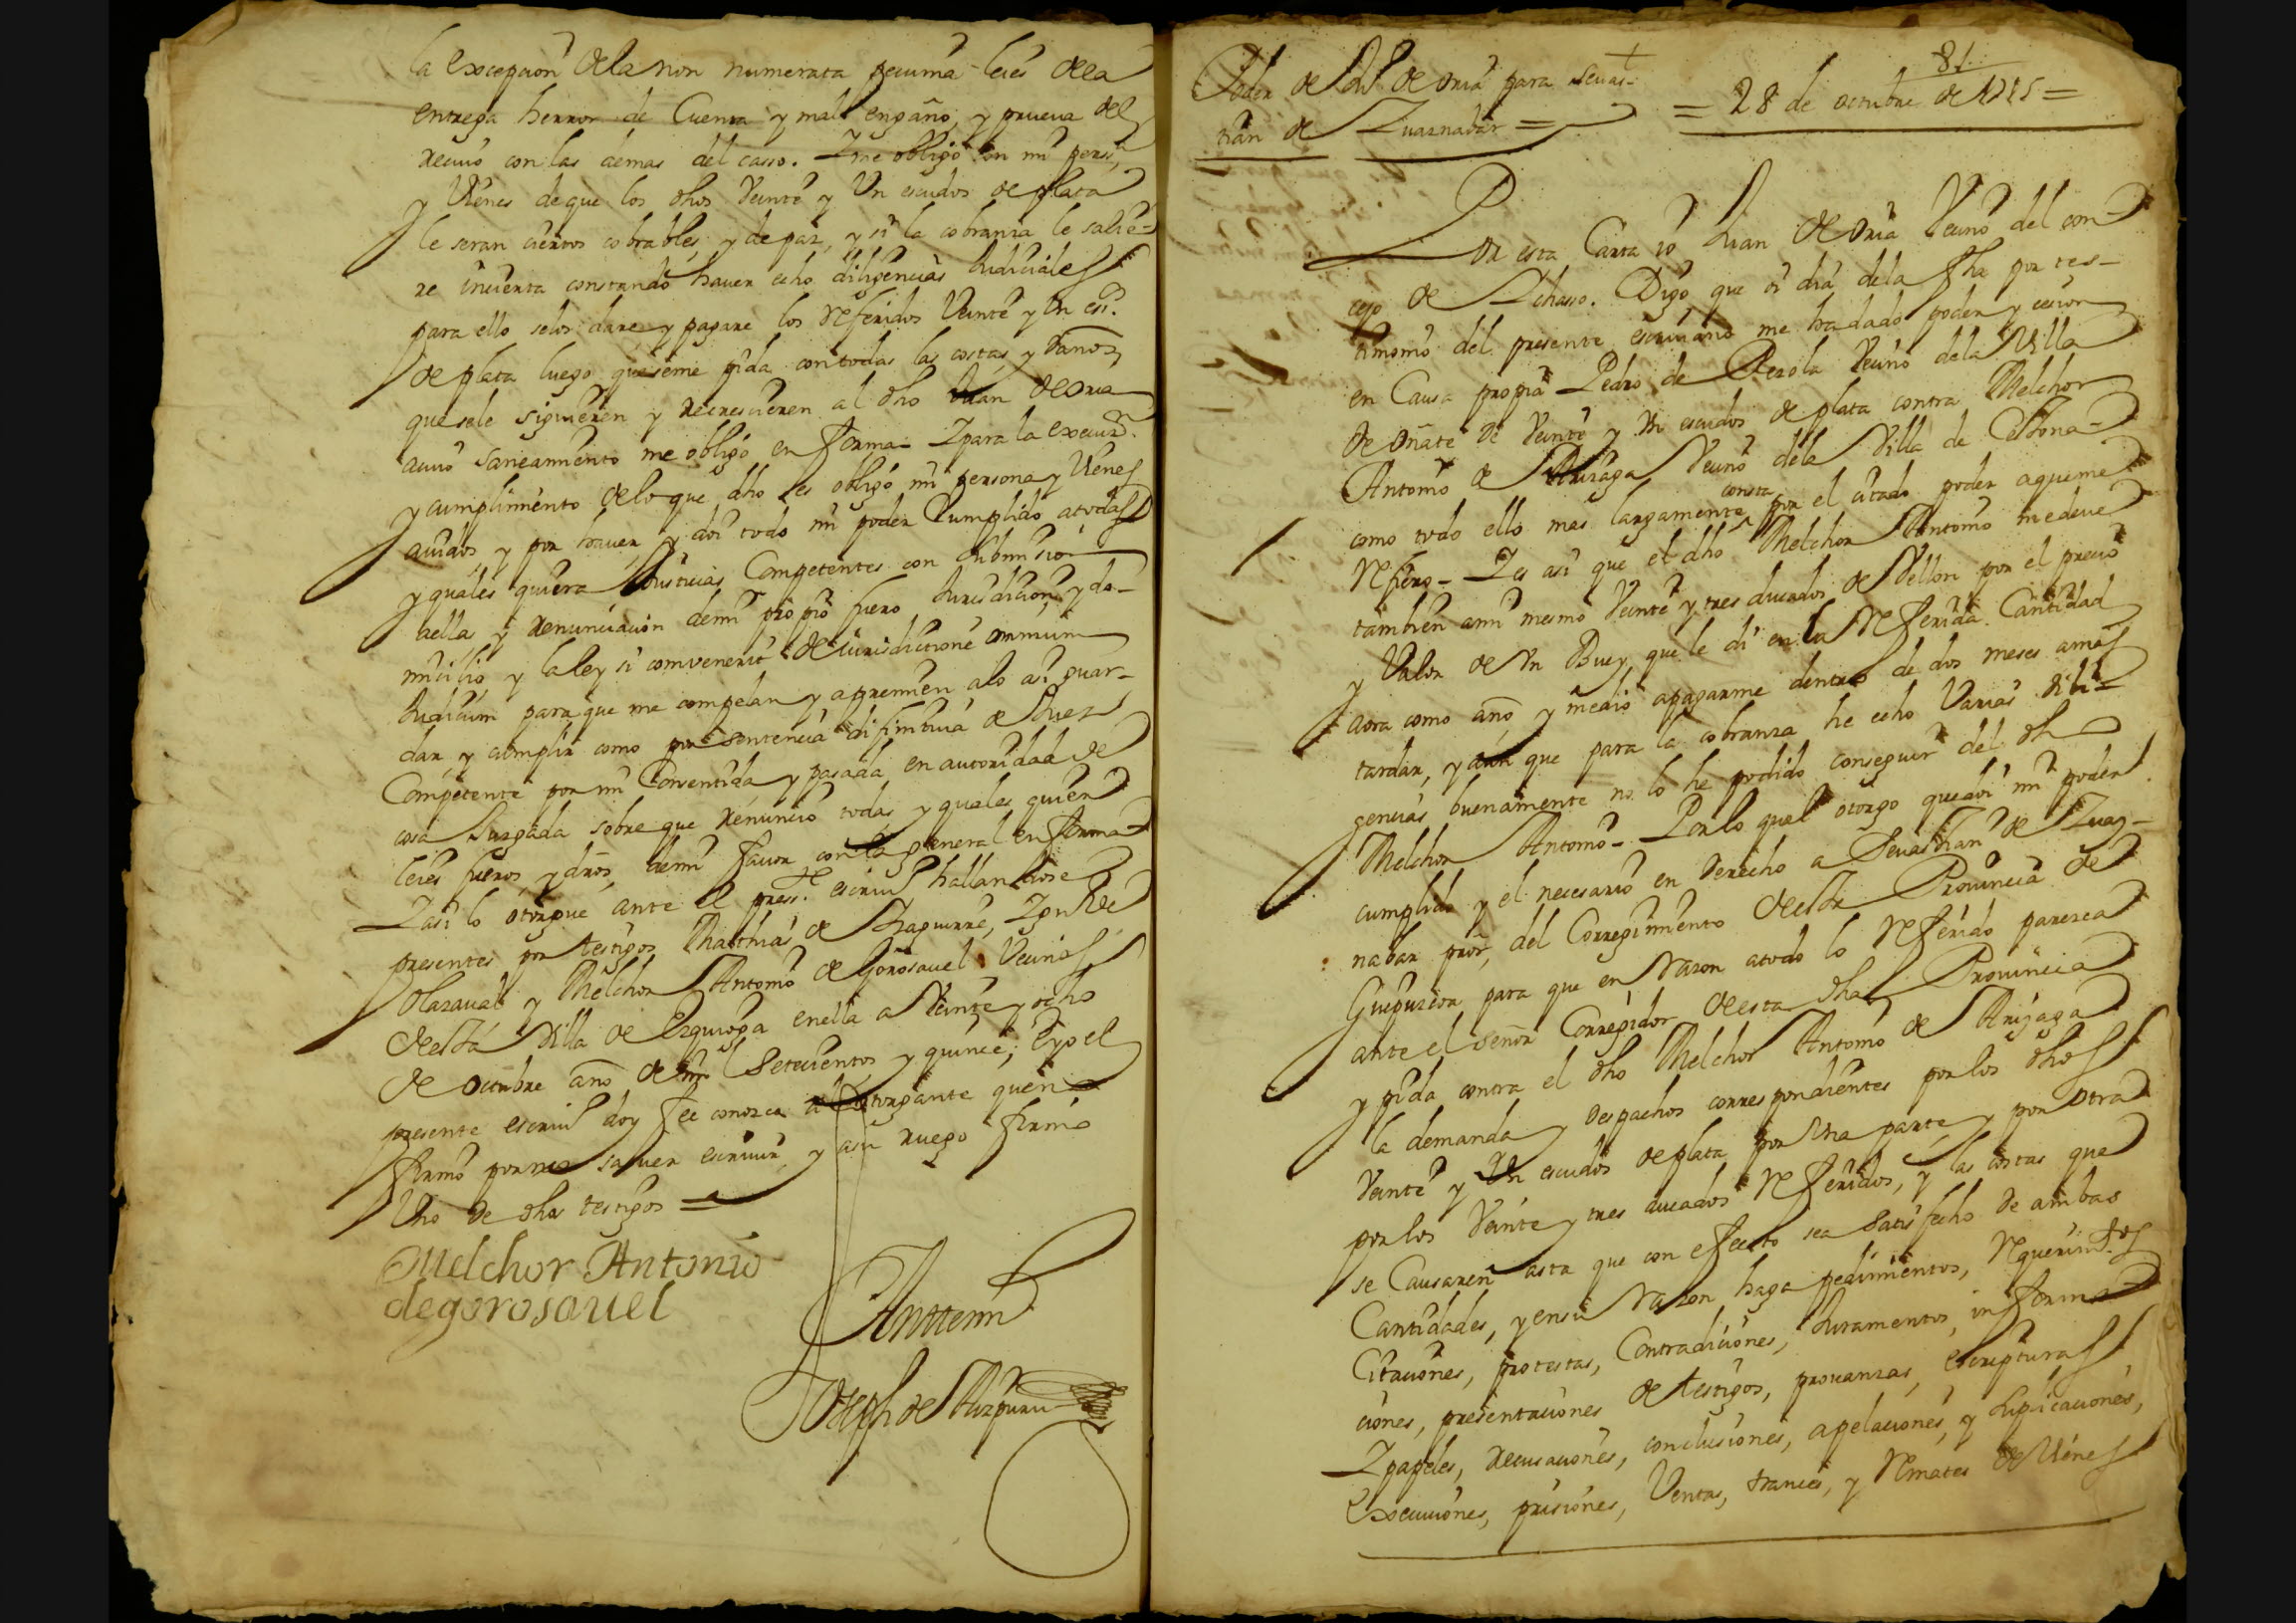 la excepcion de la non numerata pecunia leies de la
entrega herror de Cuenta y mal engaño, y prueva del
reciuo con las demas del casso. Y me obligo con mi perss.ª
y Vienes de que los dhos Veinte y Un escudos de plata
le seran ciertos cobrables, y de paz, y si la cobranza le salie-
re incierta constando haver echo diligencias Judiciales
para ello selos dare, y pagare los referidos Veinte y Un es.ˢ
de plata luego que seme pida con todas las costas, y daños
que sele siguieren y recrescieren al dho Juan de Oria
a cuio saneamiento me obligo en forma - Y para la execuz.ⁿ
y cumplimiento de lo que dho es obligo mi persona y Vienes
auidos, y por hauer, y doi todo mi poder Cumplido a todas
y quales quiera Justicias Competentes con submision
a ellas y renunciacion de mi propio fuero Jurisdicion, y do-
micilio y la ley si convenerit de iurisdictione omnium
Judicum para que me compelan y apremien alo asi guar-
dar, y cumplir como por sentencia difinitiua de Juez
Competente por mi Consentida y pasada en autoridad de
cosa Juzgada sobre que renuncio todas y quales quier
leies fueros, y dros, de mi fauor con la general en forma
Y asi lo otorgue ante el press.ᵗᵉ escriu.º hallandose
presentes por testigos, Mathias de Izaguirre, Joseph de
Olazaual y Melchor Antonio de Gorosauel Vecinos
de esta Villa de Ezquioga en ella a Veinte y ocho
de Octubre año de mil Setecientos y quince; E yo el
presente escriu.º doy fee conozco al otorgante quien no
firmo por no sauer escriuir, y a su ruego firmo
Uno de dhos testigos =
Melchor Antonio
de gorosauel
Antte mi
Joseph de Aizpuru
81
Poder de Ju.º de Oria para Seuas-
tian de Zuaznabar =
= 28 de octubre de 1715 =
Por esta Carta io Juan de Oria Vecino del con-
cejo de Ichasso. Digo, que oi dia de la fha por tes-
timonio del presente escriuano me ha dado poder y cesion
en Causa propia Pedro de Rezola Vecino dela Villa
de Oñate de Veinte y Un escudos de plata contra Melchor
Antonio de Arizaga Vecino dela Villa de Cestona
como todo ello mas largamente consta por el citado poder aque me
refiero - Y es asi que el dho Melchor Antonio me deue
tambien ami mesmo Veinte y tres ducados de Vellon por el precio
y Valor de Un Buey que le di en la referida Cantidad
aora como año y medio apagarme dentro de dos meses amas
tardar, y aun que para la cobranza he echo Varias dili-
gencias buenamente no lo he podido conseguir del dho
Melchor Antonio - Por lo qual otorgo que doi mi poder
cumplido y el necesario en derecho a Seuastian de Zuaz-
nabar pror, del Corregimiento de esta Prouincia de
Guipuzcoa para que en razon a todo lo referido parezca
ante el Señor Corregidor de esta dha Prouincia
y pida contra el dho Melchor Antonio de Arizaga
la demanda y despachos correspondientes por los dhos
Veinte y Un escudos de plata por Una parte, y por otra
por los Veinte y tres ducados referidos, y las costas que
se Causaren asta que con efecto sea Satisfecho de ambas
Cantidades, y en su razon haga pedimientos, requerim.tos
Citaciones, protestas, Contradiciones, Juramentos, informa-
ciones, presentaciones de testigos, prouanzas, escripturas
Y papeles, recusaciones, conclusiones, apelaciones, y suplicaciones,
Execuciones, prisiones, Ventas, trances, y remates de Vienes